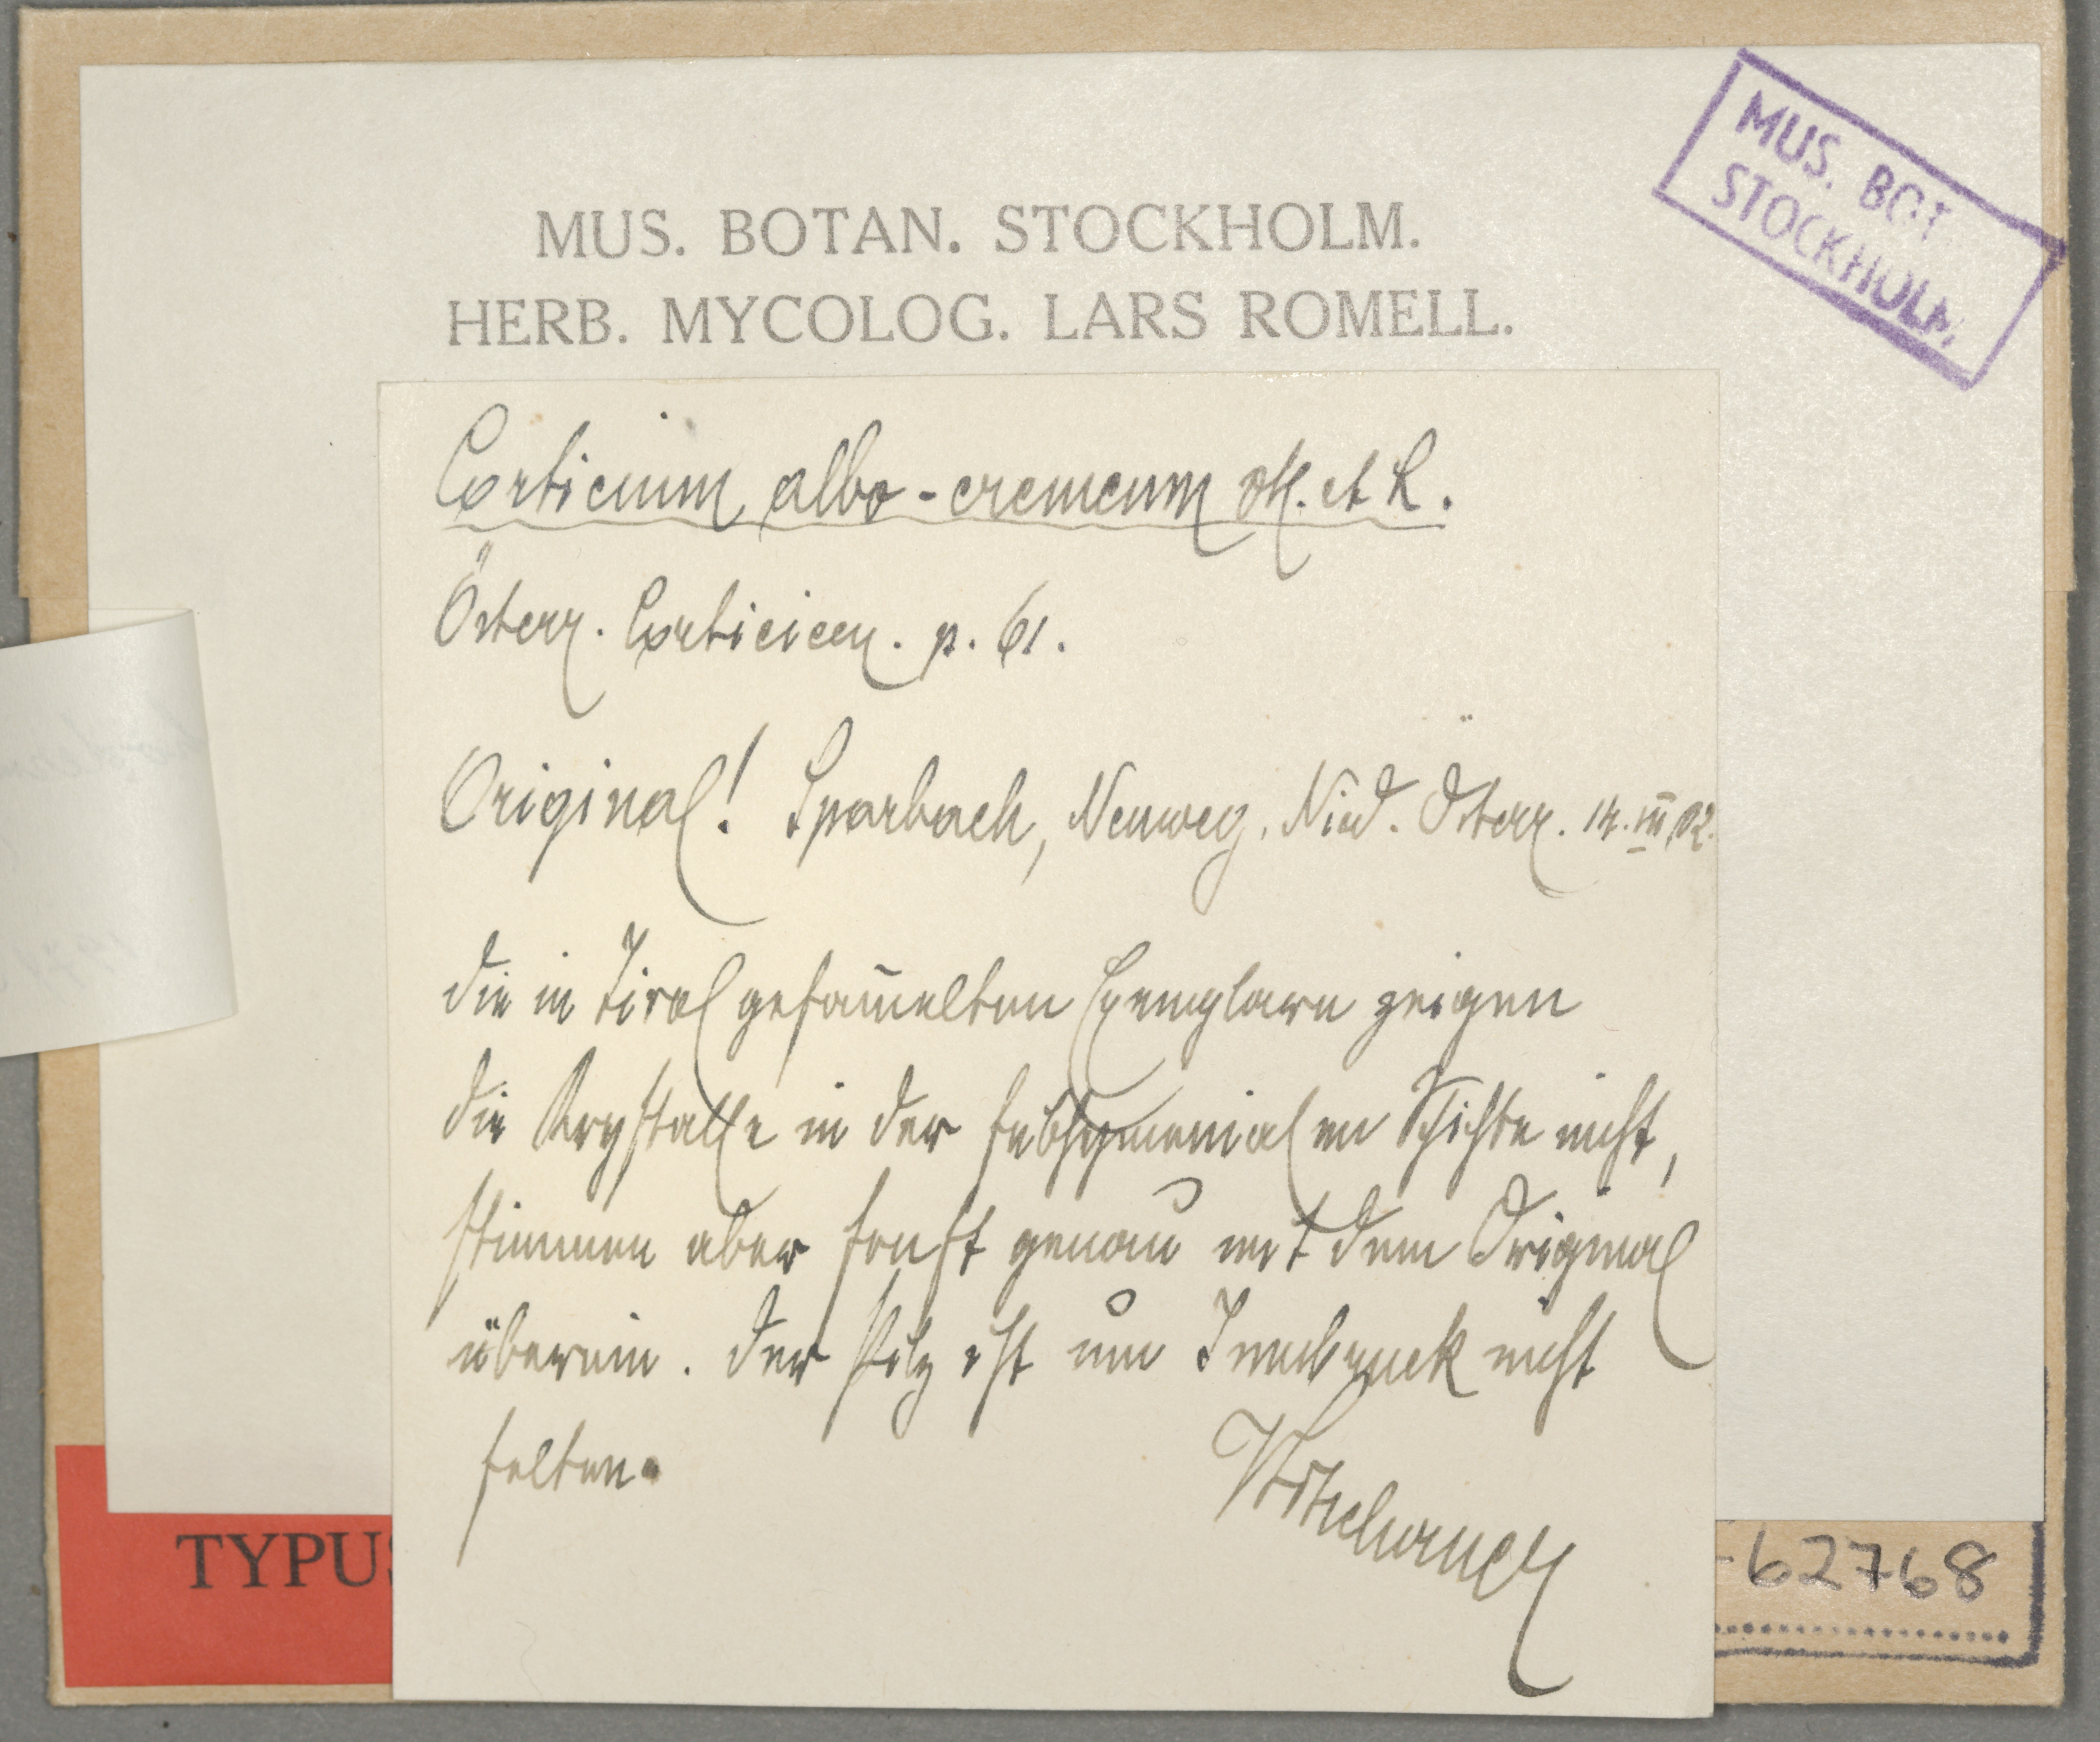 MUS. BOT.
STOCKHOLM,
MUS. BOTAN. STOCKHOLM.
HERB. MYCOLOG. LARS ROMELL.
Corticium albo-cremeum H. et L.
Österr. Corticieen. p. 61.
Original! Sparbach, Neuweg. Nied. Österr. 14. III 02.
die in Tirol gesam̄elten Exemplare zeigen
die Krystalle in der subhymenialen Schichte nicht,
stimmen aber sonst genau mit dem Original
überein. Der Pilz ist um Innsbruck nicht
selten.
Litschauer
TYPUS
-62768